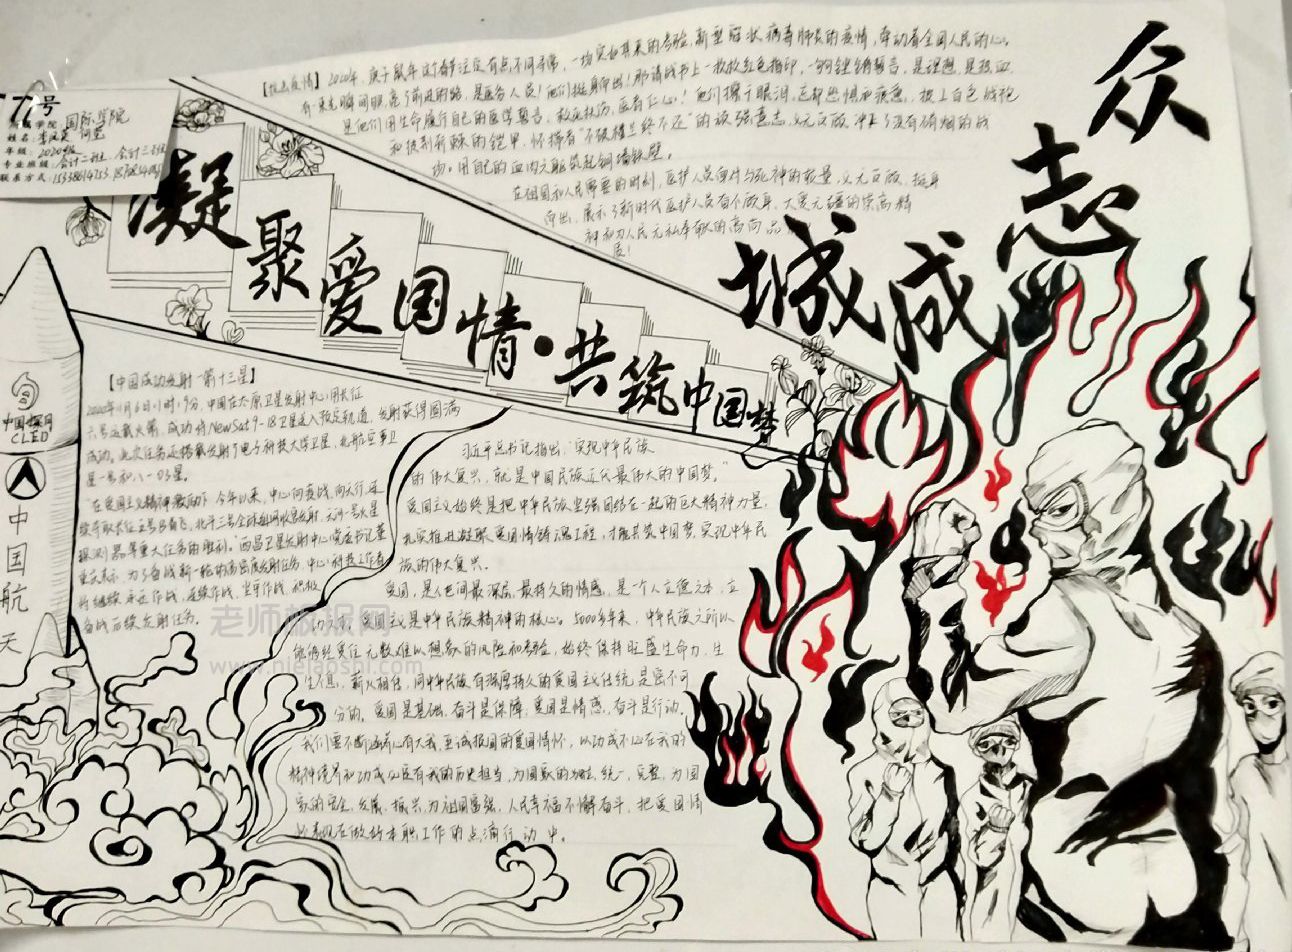 77号
学院:国际学院
姓名:
年级:2020级
专业班级:会计二班 会计三班
联系方式:
众
志
成
城
凝聚爱国情·共筑中国梦
【抗击疫情】2020年,庚子鼠年这个春节注定有点不同寻常,一场突如其来的考验,新型冠状病毒肺炎的疫情,牵动着全国人民的心。
是他们用生命履行自己的医学誓言,救死扶伤,医者仁心!他们擦干眼泪,忘却恐惧和疲惫,披上白色战袍
和铁制新颖的铠甲,怀揣着“不破楼兰终不还”的顽强意志,义无反顾,冲上了没有硝烟的战
场。用自己的血肉之躯筑起铜墙铁壁。
在祖国和人民需要的时刻,医护人员面对与死神的较量,义无反顾,挺身
而出,展示了新时代医护人员奋不顾身、大爱无疆的崇高精
神和为人民无私奉献的高尚品
质!
【中国成功发射“第十三星】
2020年11月6日11时19分,中国在太原卫星发射中心用长征
六号运载火箭,成功将NewSat9-18卫星送入预定轨道,发射获得圆满
成功。此次任务还搭载发射了电子科技大学卫星、北航空事卫
星一号和八一03星。
在爱国主义精神激励下,今年以来,中心向疫战,向天行,连
重庆表示,为了备战新一轮的高密度发射任务,中心科技工作者
将继续
备战后续发射任务。
中国探月
CLEP
中
国
航
天
习近平总书记指出,“实现中华民族
的伟大复兴,就是中国民族近代最伟大的中国梦。”
爱国主义始终是把中华民族坚强团结在一起的巨大精神力量,
扎实推进凝聚爱国情铸魂工程,才能共筑中国梦,实现中华民
族的伟大复兴。
爱国,是人世间最深层、最持久的情感,是一个人立德之本、立
功之 爱国主义是中华民族精神的核心。5000多年来,中华民族之所以
能够经受住无数难以想象的风险和考验,始终保持旺盛生命力,生
生不息,薪火相传,同中华民族有深厚持久的爱国主义传统是密不可
分的。爱国是基础,奋斗是保障;爱国是情感,奋斗是行动。
我们要不断涵养心有大我、至诚报国的爱国情怀,以功成不必在我的
精神境界和功成必定有我的历史担当,为国家的独立、统一、完整,为国
家的安全、发展、振兴,为祖国富强、人民幸福不懈奋斗,把爱国情
体现在做好本职工作的点滴行动中。
老师板报网
www.nielaoshi.com